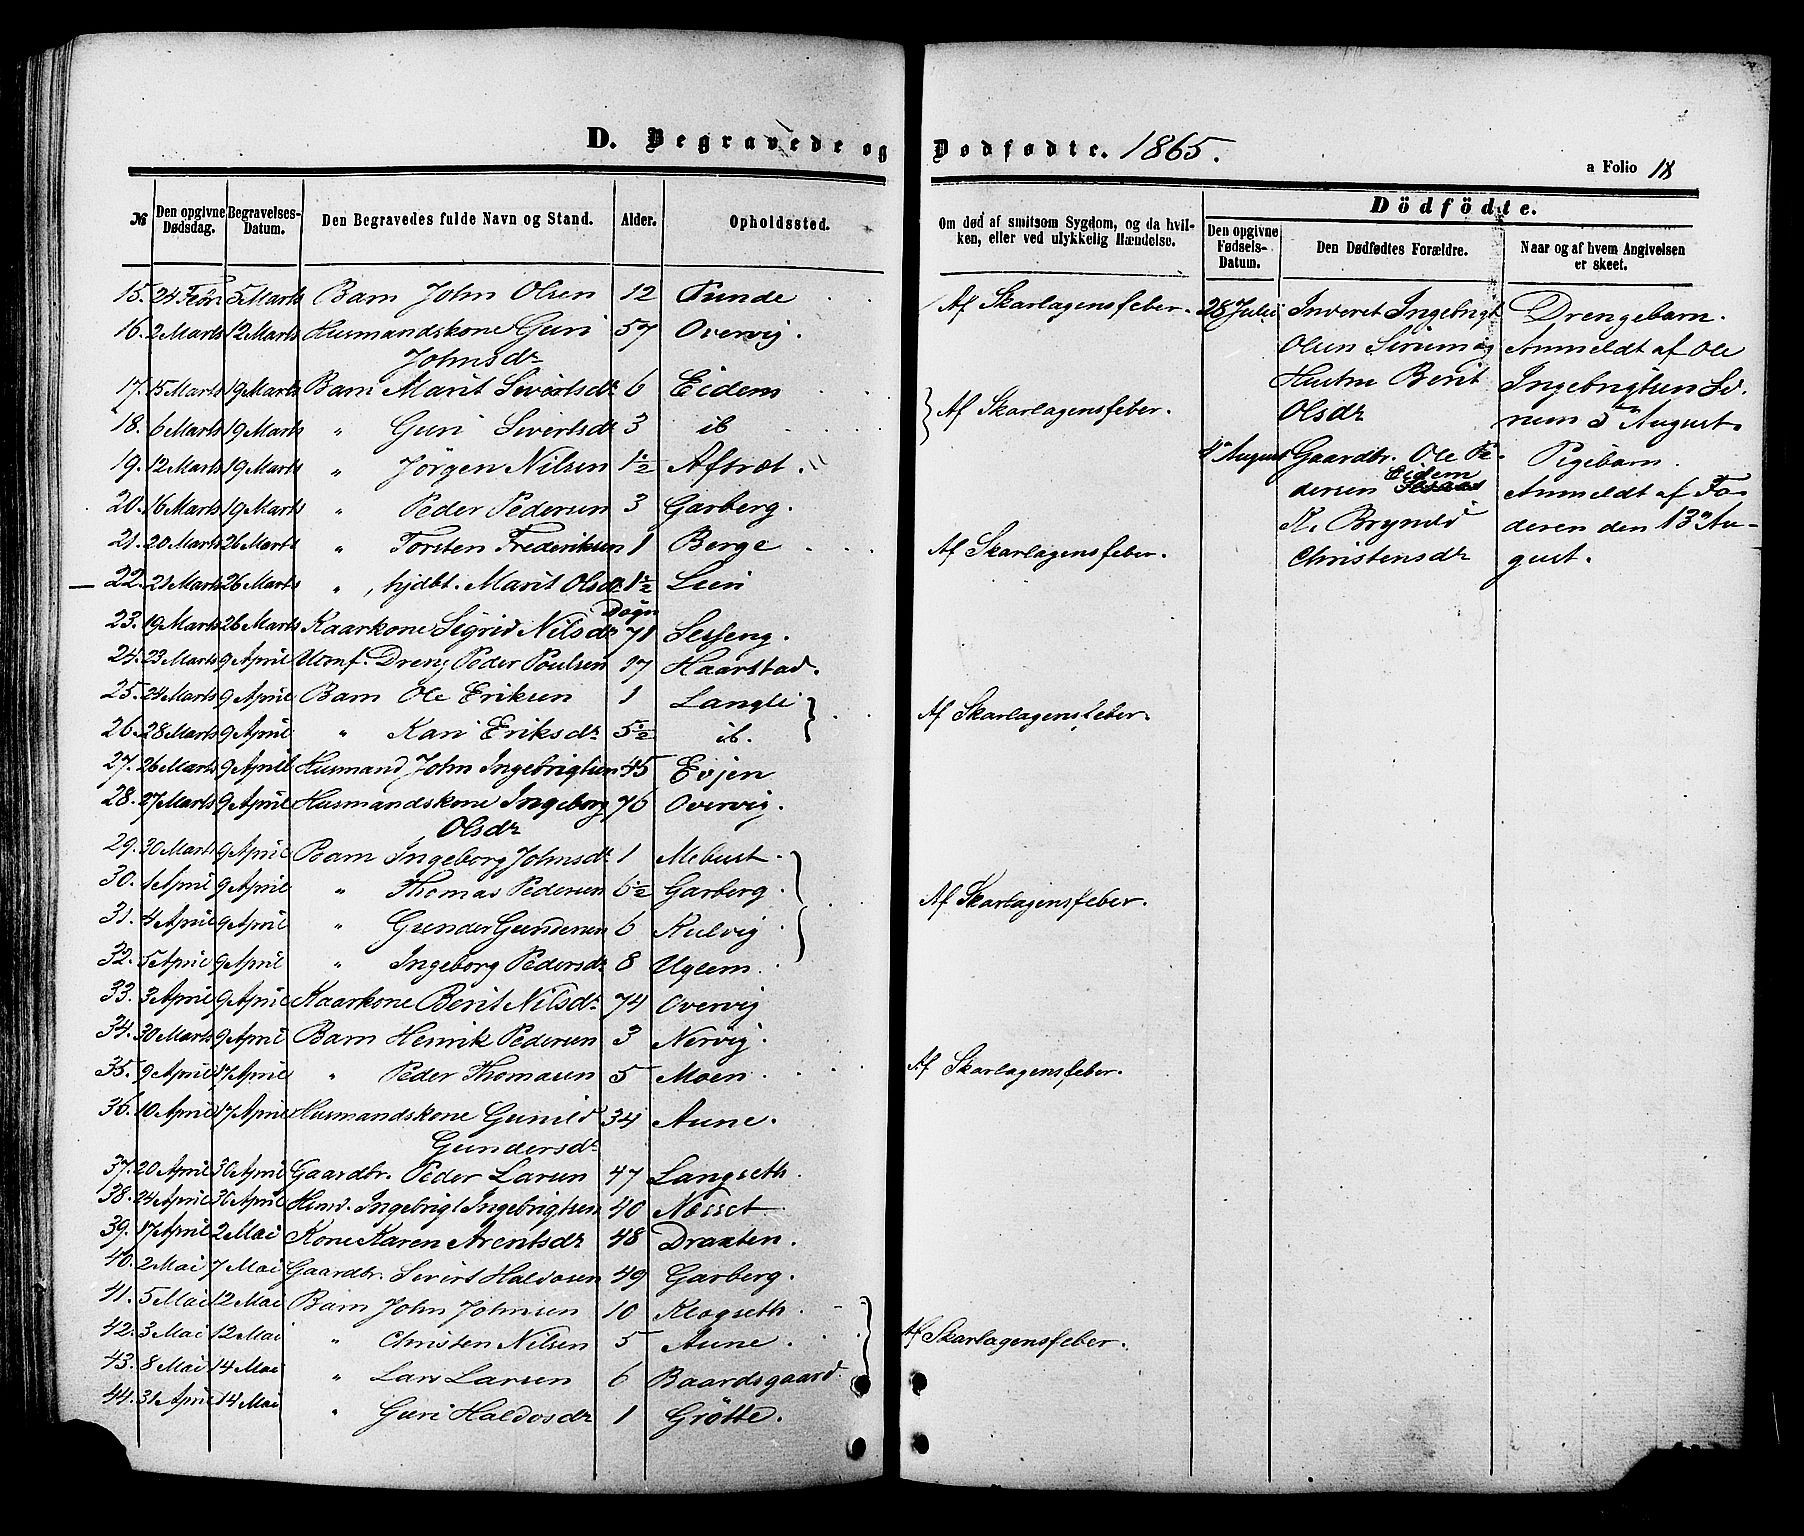 D. Begravede og Dødfødte. 1865.
a Folio 18
№ Den opgivne Dødsdag. Begravelses-Datum. Den Begravedes fulde Navn og Stand. Alder. Opholdssted.
Om død af smitsom Sygdom, og da hvilken, eller ved ulykkelig Hændelse.
Dödfödte.
Den opgivne Fødsels-Datum. Den Dødfødtes Forældre. Naar og af hvem Angivelsen er skeet.
15. 24 Febr 5 Marts Barn John Olsen 12 Tunde Af Skarlagensfeber.
16. 2 Marts 12 Marts Huusmandskone Guri 57 Overvig
Johnsdr
17. 15 Marts 19 Marts Barn Marit Sivertsdr 6 Eidem
18. 6 Marts 19 Marts " Guri Sivertsdr 3 ib Af Skarlagensfeber.
19. 12 Marts 19 Marts " Jörgen Nilsen 1½ Aftret "
20. 16 Marts 19 Marts " Peder Pedersen 3 Garberg.
21. 20 Marts 26 Marts " Torsten Frederiksen 1 Berge Af Skarlagensfeber.
22. 21 Marts 26 Marts ", hjdbt. Marit Olsdr 1½ Lien
Døgn
23. 19 Marts 26 Marts Kaarkone Sigrid Nilsdr 71 Sesseng.
24. 23 Marts 9 April Ukonf. Dreng Peder Poulsen 17 Haarstad.
25. 24 Marts 9 April Barn Ole Eriksen 1 Langli Af Skarlagensfeber.
26. 28 Marts 9 April " Kari Eriksdr 5½ ib.
27. 26 Marts 9 April Husmand John Ingebrigtsen 45 Evjen
28. 27 Marts 9 April Husmandskone Ingeborg 76 Overvig.
Olsdr
29. 30 Marts 9 April Barn Ingeborg Johnsdr 1 Mebust.
30. 1 April 9 April " Thomas Pedersen 6½ Garberg. Af Skarlagensfeber.
31. 4 April 9 April " Gunder Gundersen 6 Kulvig
32. 5 April 9 April " Ingeborg Pedersdr 8 Uglem.
33. 3 April 9 April Kaarkone Berit Nilsdr 74 Overvig
34. 30 Marts 9 April Barn Henrik Pedersen 3 Nervig.
35. 9 April 17 April " Peder Thomasen 5 Moen. Af Skarlagensfeber.
36. 10 April 17 April Husmandskone Gunild 34 Aune.
Gundersdr
37. 20 April 30 April Gaardbr. Peder Larsen 47 Langseth.
38. 24 April 30 April Husmd. Ingebrigt Ingebrigtsen 40 Næsset.
39. 17 April 2 Mai Kone Karen Arentsdr 48 Draxten.
40. 2 Mai 7 Mai Gaardbr. Sivert Haldosen 49 Garberg.
41. 5 Mai 12 Mai Barn John Johnsen 10 Klogseth.
42. 3 Mai 12 Mai " Christen Nilsen 5 Aune. Af Skarlagensfeber.
43. 8 Mai 14 Mai " Lars Larsen 6 Baardsgaard.
44. 31 April 14 Mai " Guri Haldosdr 1 Grötte.
28 Julii Inderst Ingebrigt Drengebarn.
Olsen Sirum og Anmeldt af Ole
Hustru Berit Ingebrigtsen Si-
Olsdr rum 5 August.
4 August Gaardbr. Ole Pe- Pigebarn.
Eidem
dersen Anmeldt af Fa-
K. Brynild deren den 13 Au-
Christensdr gust.